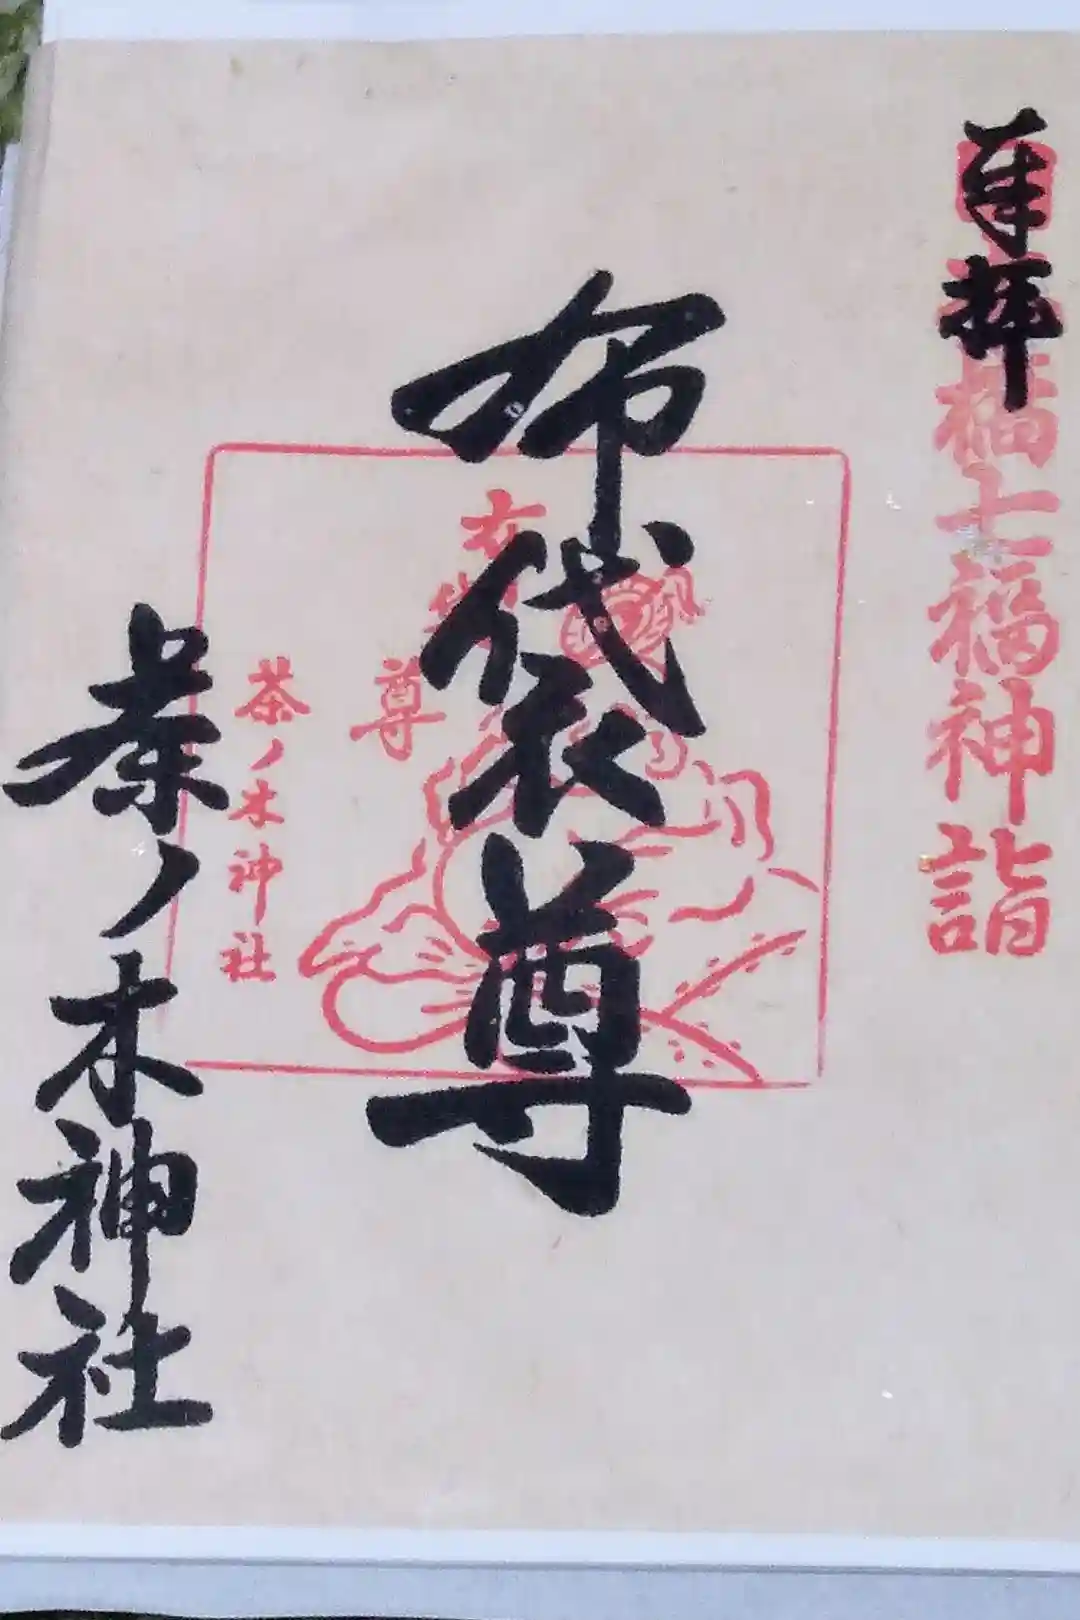 奉拝
橋七福神詣
布袋尊
尊
茶ノ木神社
茶ノ木神社